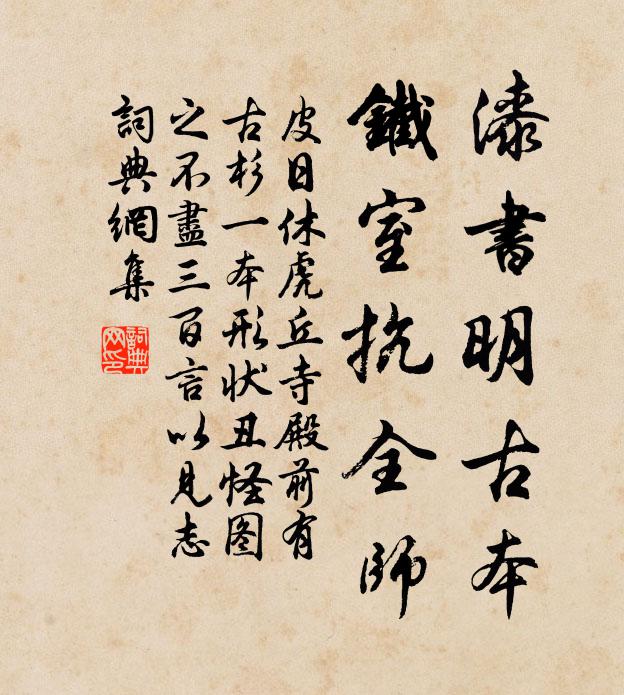 漆書明古本
鐵室抗全師
皮日休虎丘寺殿前有
古杉一本形状丑怪图
之不盡三百言以見志
詞典網集
詞典
网印